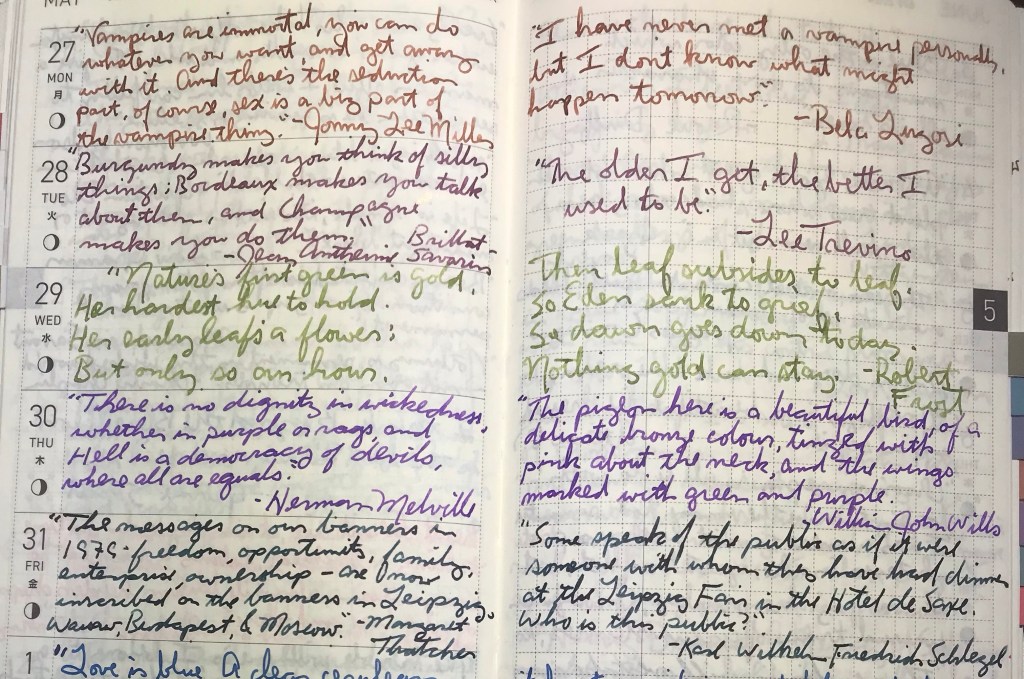 MAY
27
MON
月
"Vampires are immortal, you can do
whatever you want, and get away
with it. And there's the seduction
part, of course, sex is a big part of
the vampire thing." -Jonny Lee Miller
28
TUE
火
"Burgundy makes you think of silly
things; Bordeaux makes you talk
about them, and Champagne
makes you do them."
-Jean Anthelme Brillat-
Savarin
29
WED
水
"Nature's first green is gold,
Her hardest hue to hold.
Her early leaf's a flower;
But only so an hour.
30
THU
木
"There is no dignity in wickedness,
whether in purple or rags, and
Hell is a democracy of devils,
where all are equals."
-Herman Melville
31
FRI
金
"The messages on our banners in
1979-freedom, opportunity, family,
enterprise, ownership - are now
inscribed on the banners in Leipzig,
Warsaw, Budapest, & Moscow." -Margaret
Thatcher
1
"Love is blue. A clear
"I have never met a vampire personally,
but I don't know what might
happen tomorrow."
-Bela Lugosi
"The older I get, the better I
used to be."
-Lee Trevino
Then leaf subsides to leaf.
So Eden sank to grief,
So dawn goes down today.
Nothing gold can stay. -Robert
Frost
5
"The pigeon here is a beautiful bird, of a
delicate bronze colour, tinged with
pink about the neck, and the wings
marked with green and purple.
William John Wills
"Some speak of the public as if it were
someone with whom they have had dinner
at the Leipzig Fair in the Hotel de Saxe.
Who is this public?"
-Karl Wilhelm Friedrich Schlegel